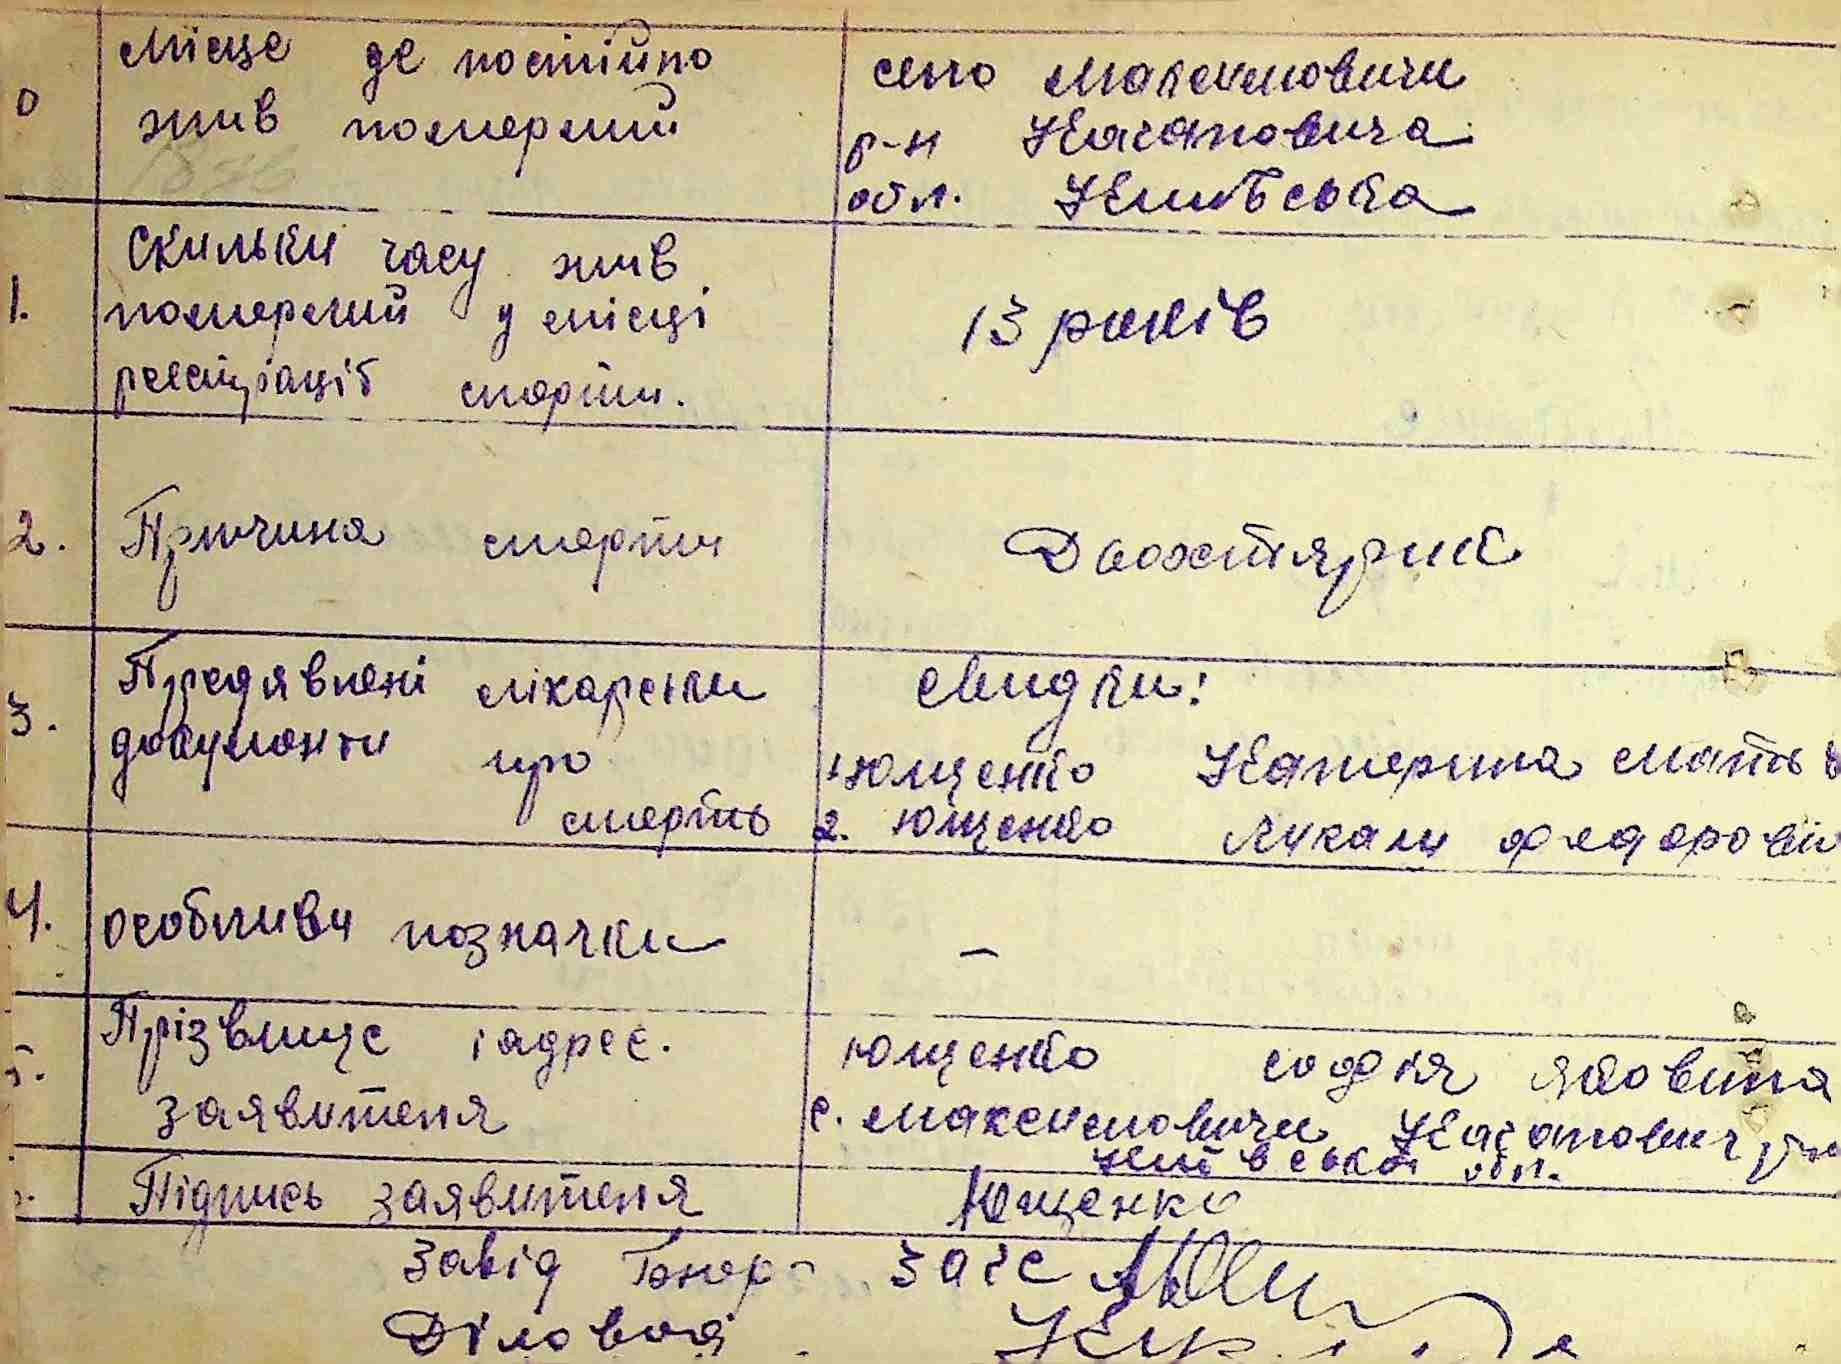 0 Місце де постійно
жив померший
село Максимовичи
р-н Кагановича
обл. Київська
1. Скильки часу жив
померший у місці
реєстрації смерти.
13 років
2. Причина смерти
3. Предявлені лікарськи
документи про
смерть
свидки:
1 Ющенко Катерина
2. Ющенко
4. особливи позначки –
5. Прізвище і адрес.
заявителя
Ющенко Софія Яковна
с. Максимовичи Каганович р-н
Київська обл.
Підпись заявителя Ющенко
Завід Загс
Діловод